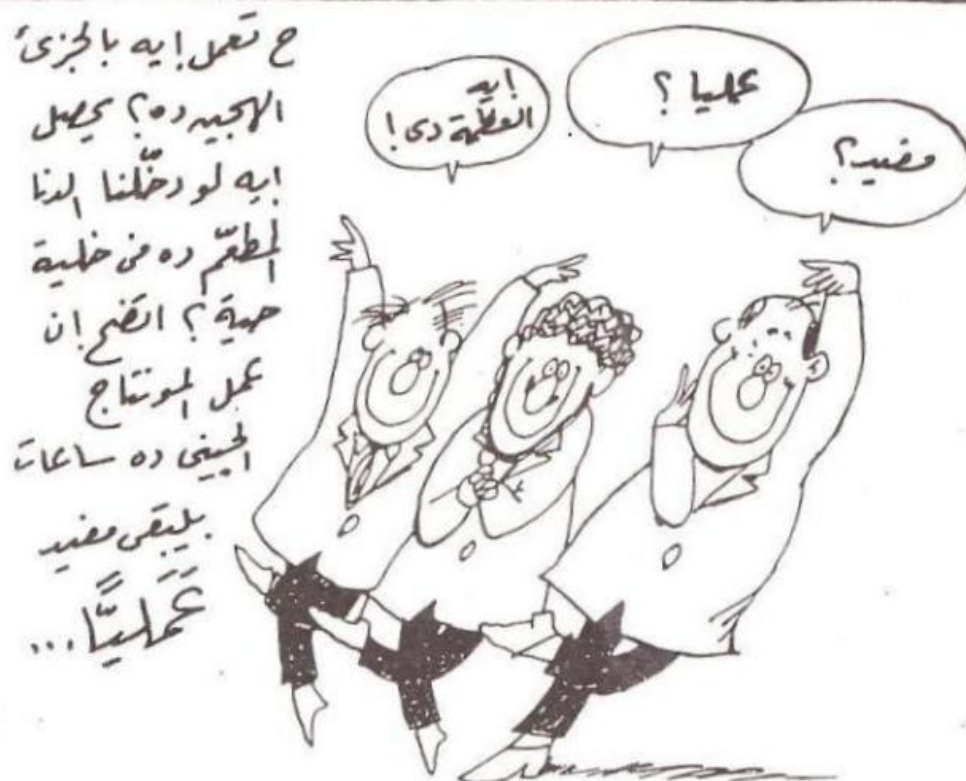 ح تعمل إيه بالجزئ
الهجين ده؟ يحصل
إيه لو دخّلنا الدنا
المطعّم ده فى خلية
حية؟ اتضح ان
عمل المونتاج
الجينى ده ساعات
بيبقى مفيد
عَمَليًّا...
إيه
العظمة دى!
عمليا؟
مفيد؟